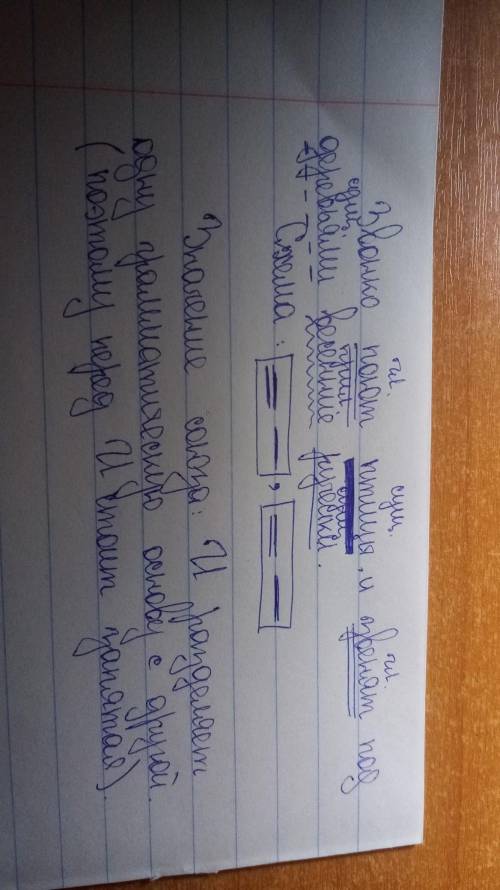 гл. сущ. гл.
Звонко поют птицы, и звенят под
сущ. прил. сущ.
деревьями весенние ручейки.
Схема:
Значение союза: И разделяет
одну грамматическую основу с другой.
(поэтому перед И стоит запятая).